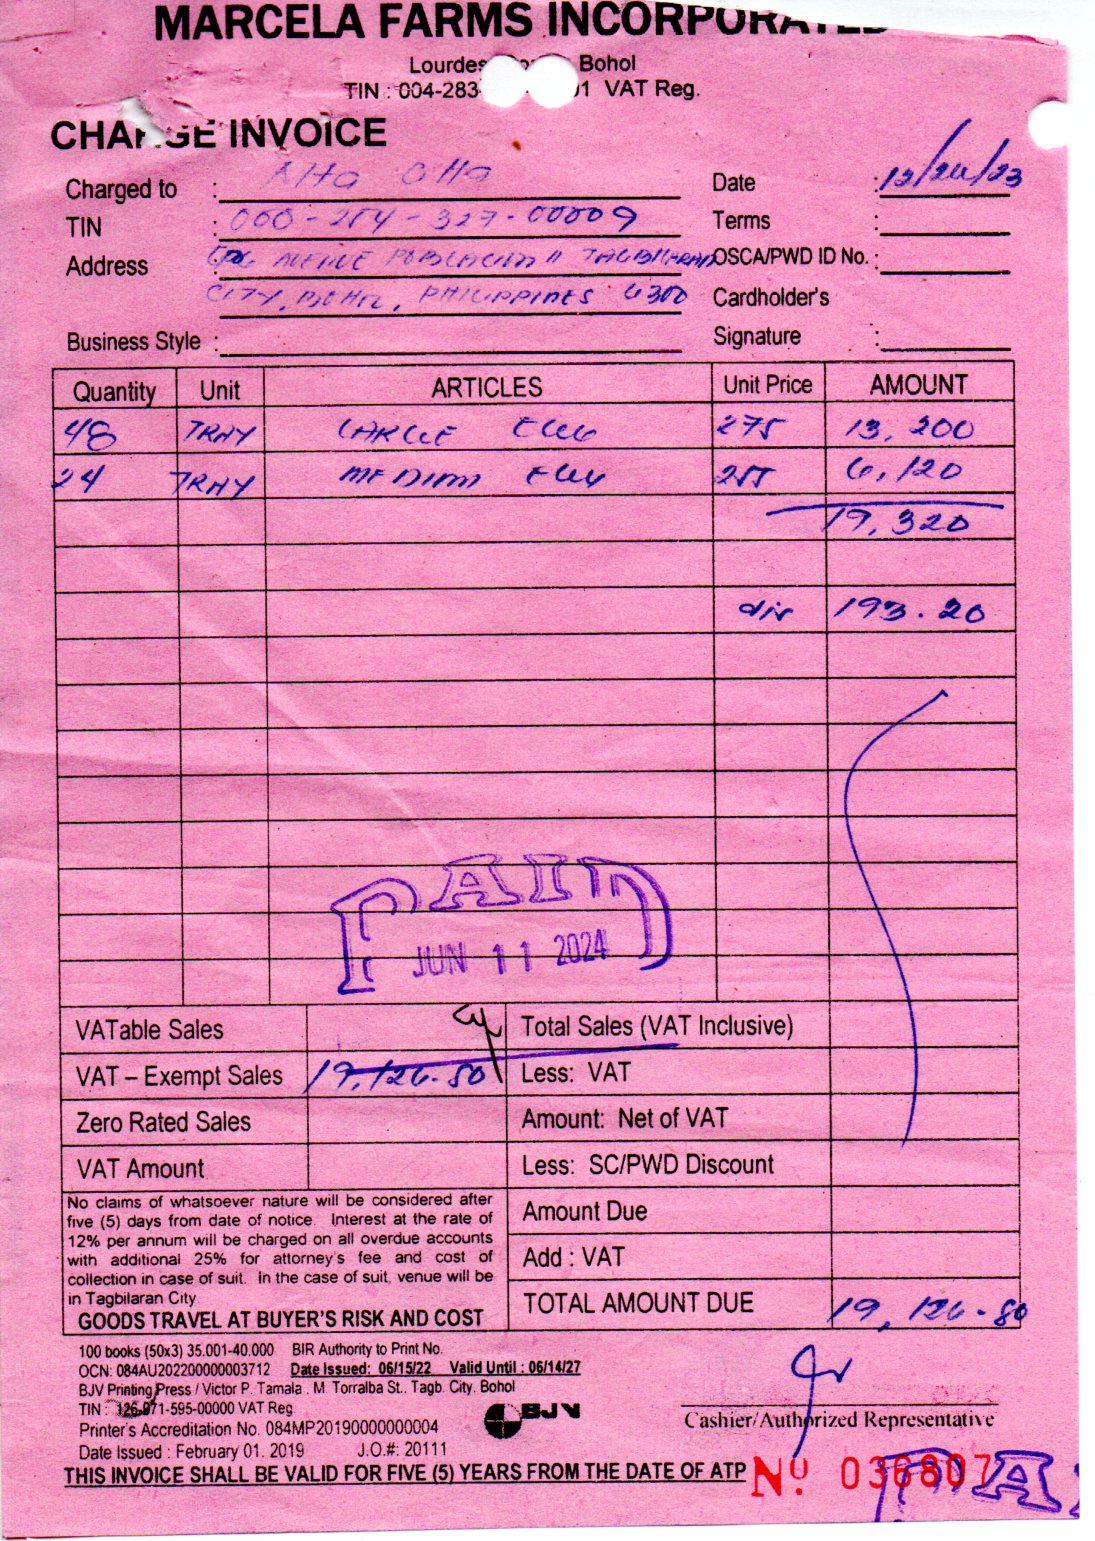 MARCELA FARMS INCORPORATED
Lourdes Bohol
TIN : 004-283- 01 VAT Reg.
CHARGE INVOICE
Charged to : Alta Citta
Date : 12/24/23
TIN : 000-254-327-00009
Terms :
Address : CPG AVENUE POBLACION II TAGBILARAN
OSCA/PWD ID No. :
CITY, BOHOL, PHILIPPINES 6300
Cardholder's
Signature :
Business Style :
Quantity Unit ARTICLES Unit Price AMOUNT
48 TRAY LARGE EGG 275 13,200
24 TRAY MEDIUM EGG 255 6,120
19,320
193.20
PAID
JUN 11 2024
VATable Sales Total Sales (VAT Inclusive)
VAT – Exempt Sales 19,126.80 Less: VAT
Zero Rated Sales Amount: Net of VAT
VAT Amount Less: SC/PWD Discount
Amount Due
Add : VAT
TOTAL AMOUNT DUE 19,126.80
No claims of whatsoever nature will be considered after
five (5) days from date of notice. Interest at the rate of
12% per annum will be charged on all overdue accounts
with additional 25% for attorney's fee and cost of
collection in case of suit. In the case of suit, venue will be
in Tagbilaran City
GOODS TRAVEL AT BUYER'S RISK AND COST
100 books (50x3) 35.001-40.000 BIR Authority to Print No.
OCN: 084AU202200000003712 Date Issued: 06/15/22 Valid Until : 06/14/27
BJV Printing Press / Victor P. Tamala . M. Torralba St.. Tagb. City. Bohol
TIN : 126-971-595-00000 VAT Reg
Printer's Accreditation No. 084MP20190000000004
Date Issued : February 01. 2019 J.O.#: 20111
BJV
Cashier/Authorized Representative
THIS INVOICE SHALL BE VALID FOR FIVE (5) YEARS FROM THE DATE OF ATP
Nº 036807
PAI